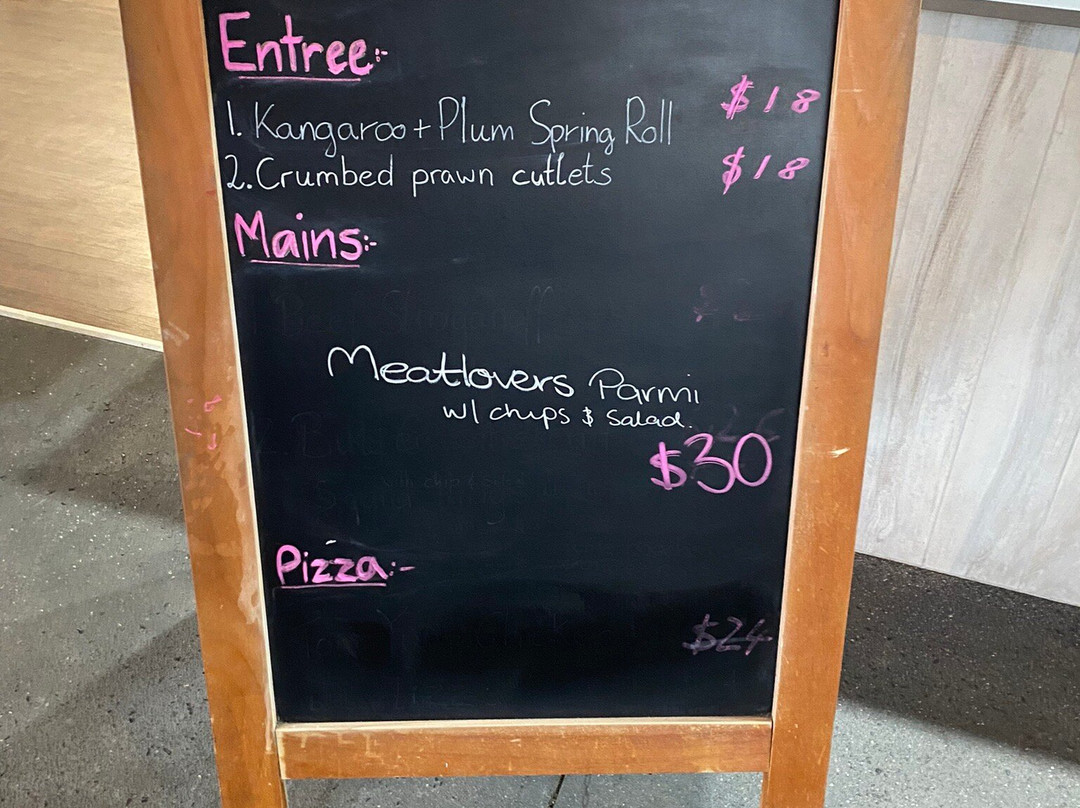 Entree:-
1. Kangaroo + Plum Spring Roll $18
2. Crumbed prawn cutlets $18
Mains:-
Meatlovers Parmi
w/ chips & Salad.
$30
Pizza:-
$24